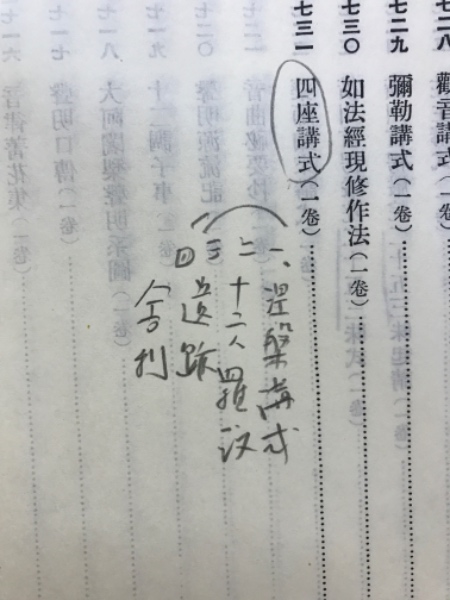 七二八 觀音講式(一卷)
七二九 彌勒講式(一卷)
七三〇 如法經現修作法(一卷)
七三一 四座講式(一卷)
一、涅槃講式
二 十六羅汉
三 遺跡
四 舍利